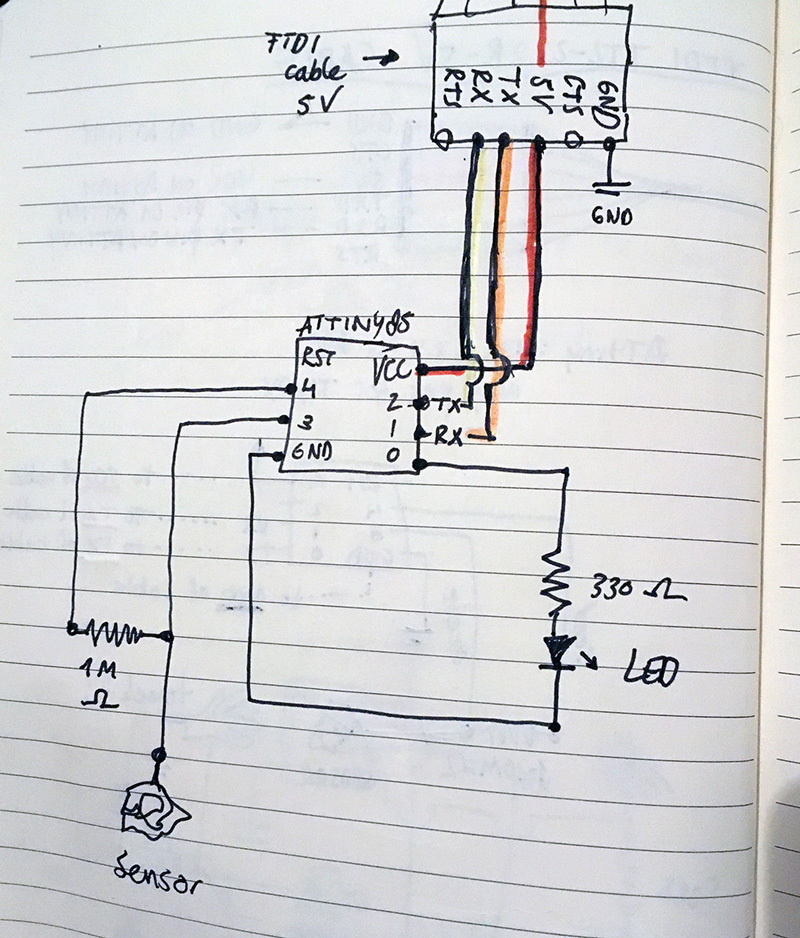 FTDI
cable
5V
RTS
RX
TX
5V
CTS
GND
GND
ATTINY85
RST
VCC
4
2
TX
3
1
RX
GND
0
330 Ω
LED
1M
Ω
Sensor